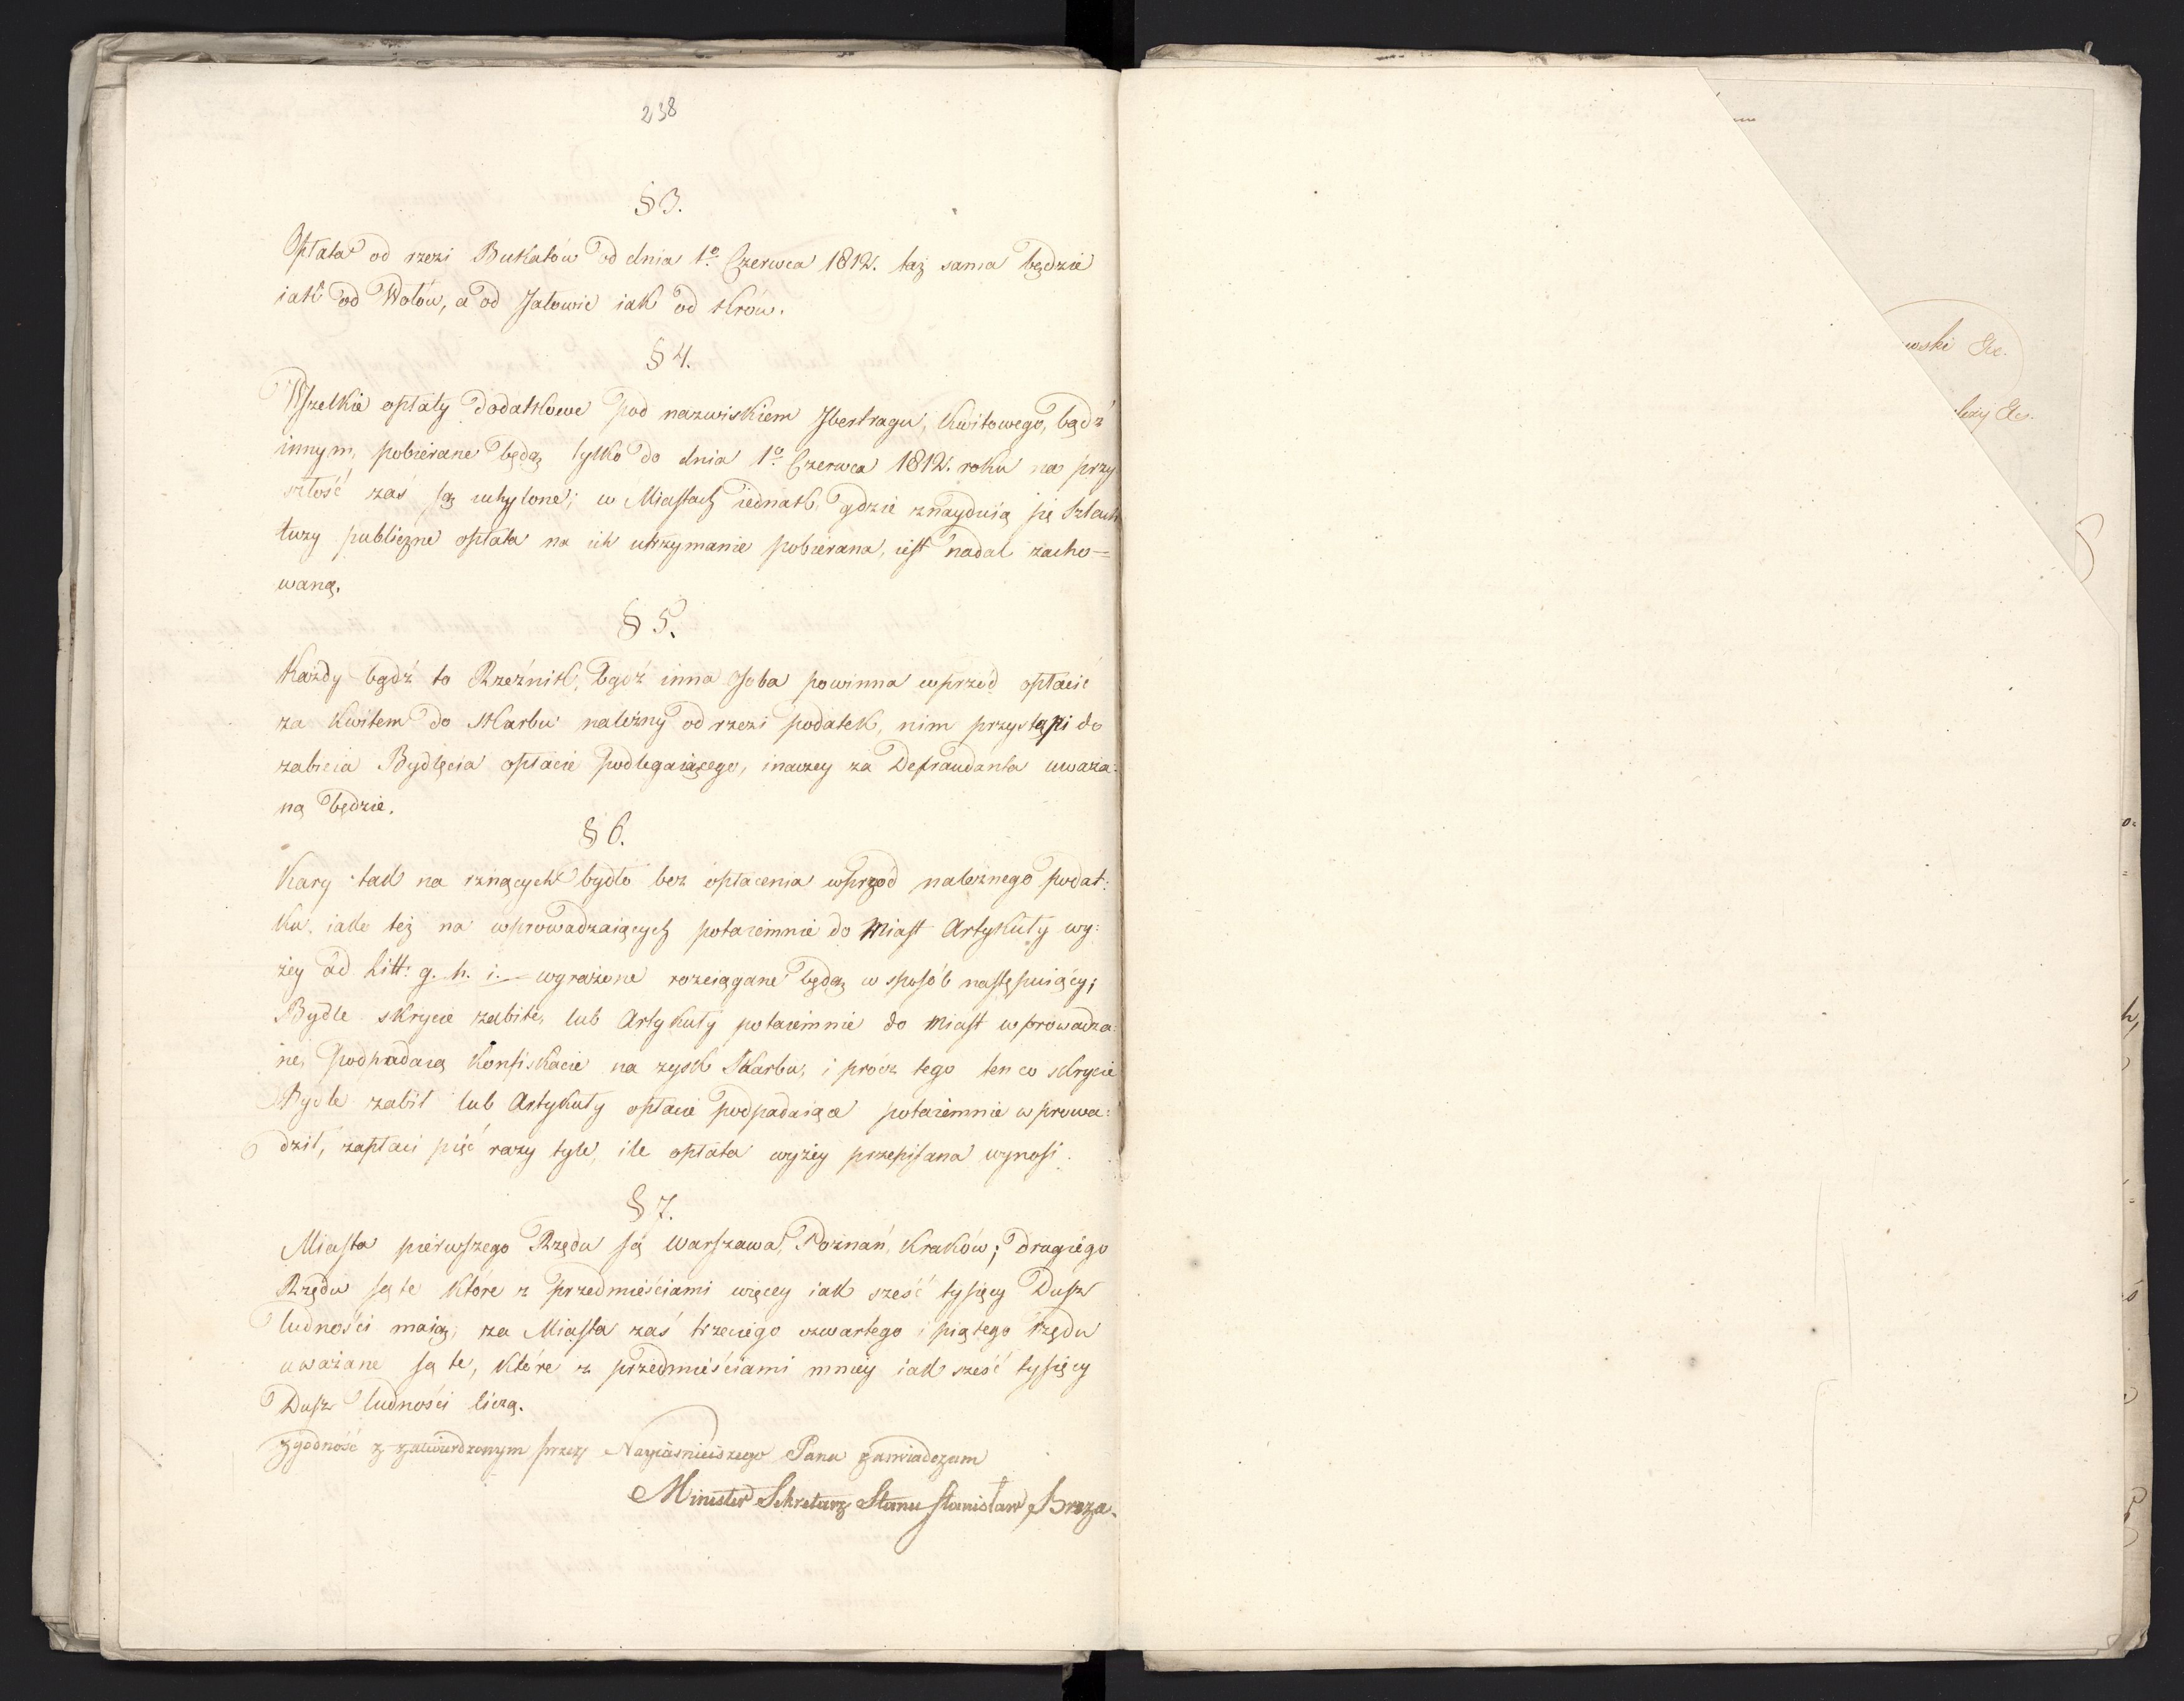 238
§ 3.
Opłata od rzezi Bukatów od dnia 1º Czerwca 1812. taż sama będzie
iak od Wołów, a od Jałowic iak od Krów.
§ 4.
Wszelkie opłaty dodatkowe pod nazwiskiem Jbertragu, Kwitowego, bądź
innym, pobierane będą tylko do dnia 1º Czerwca 1812. roku na przy
szłość zaś są uchylone; w Miastach iednak, gdzie znayduią się Szlach
tuzy publiczne opłata na ich utrzymanie pobierana, iest nadal zacho=
waną.
§ 5.
Każdy bądź to Rzeźnik, bądź inna Osoba powinna wprzód opłacić
za Kwitem do Skarbu należny od rzezi podatek, nim przystąpi do
zabicia Bydlęcia opłacie podlegaiącego, inaczey za Defraudanta uważa=
ną będzie.
§ 6.
Kary tak na rznących bydło bez opłacenia wprzód należnego podat=
ku, iako też na wprowadzaiących potaiemnie do Miast Artykuły wy=
żey ad Litt: g. h. i. wyrażone rozciągane będą w sposób następuiący;
Bydle skrycie zabite, lub Artykuły potaiemnie do Miast wprowadza=
ne, podpadaią Konfiskacie na zysk Skarbu, i prócz tego ten co skrycie
Bydle zabił lub Artykuły opłacie podpadaiące potaiemnie wprowa=
dził, zapłaci pięć razy tyle, ile opłata wyżey przepisana wynosi.
§ 7.
Miasta pierwszego Rzędu są Warszawa, Poznań, Kraków; drugiego
Rzędu są te które z przedmieściami więcey iak sześć tysięcy Dusz
ludności maią; za Miasta zaś trzeciego czwartego i piątego rzędu
uważane są te, które z przedmieściami mniey iak sześć tysięcy
Dusz ludności liczą.
Zgodność z zatwierdzonym przez Nayiaśnieiszego Pana zaswiadczam
Minister Sekretarz Stanu Stanisław Breza.
wski &c.